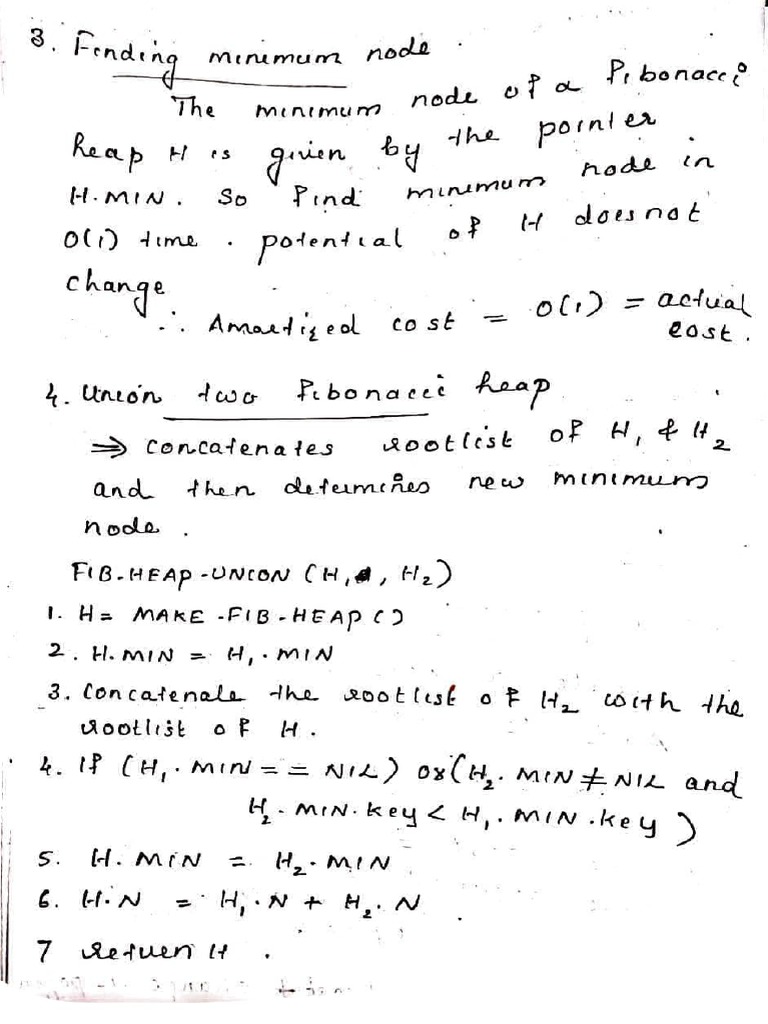 3. Finding minimum node.
The minimum node of a Fibonacci
heap H is given by the pointer
H.MIN. So find minimum node in
O(1) time. potential of H does not
change
∴ Amortized cost = O(1) = actual
cost.
4. Union two Fibonacci heap
⇒ concatenates rootlist of H₁ & H₂
and then determines new minimum
node.
FIB-HEAP-UNION (H₁, H₂)
1. H = MAKE-FIB-HEAP ()
2. H.MIN = H₁.MIN
3. Concatenate the rootlist of H₂ with the
rootlist of H.
4. If (H₁.MIN == NIL) or (H₂.MIN ≠ NIL and
H₂.MIN.key < H₁.MIN.key)
5. H.MIN = H₂.MIN
6. H.N = H₁.N + H₂.N
7 return H.